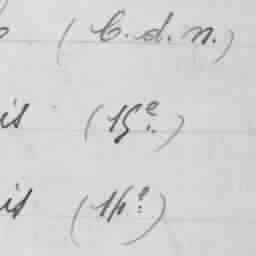 (C.d.n.)
is (15e.)
is (14e.)